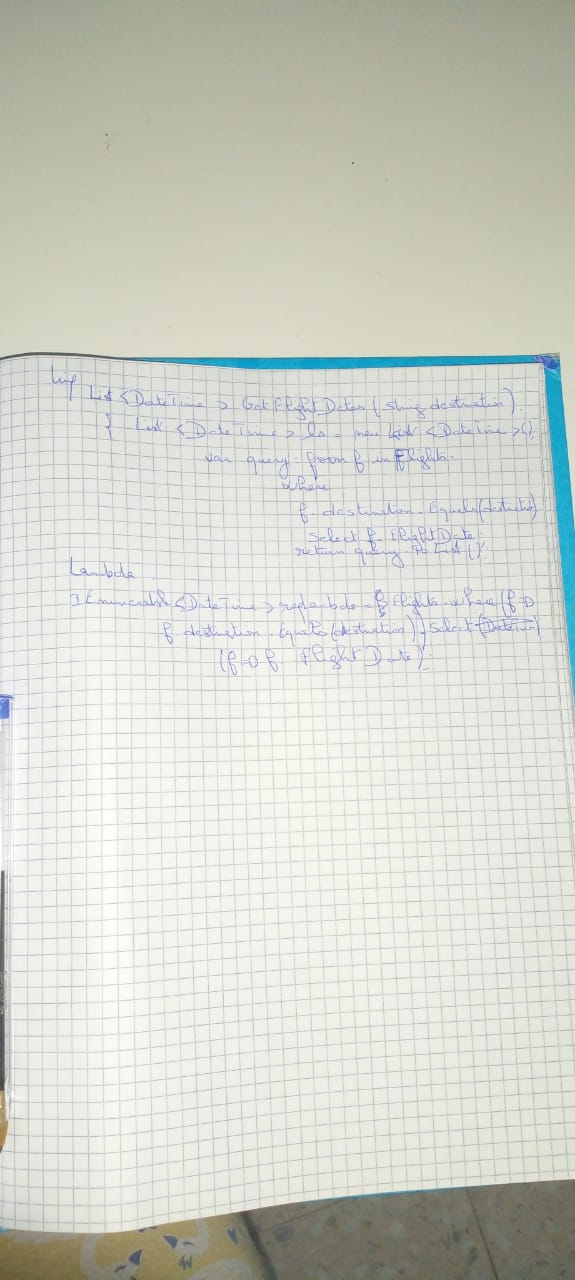 Linq
List <DateTime> GetFlightDates (string destination).
{ List <DateTime> ls = new List <DateTime>();
var query = from f in Flights.
where
f. destination. Equals(destination)
select f. FlightDate
return query. ToList();
Lambda
IEnumerable <DateTime> reqlambda = Flights. where (f=>
f destination. Equals (destination)). Select
(f=> f. FlightDate);